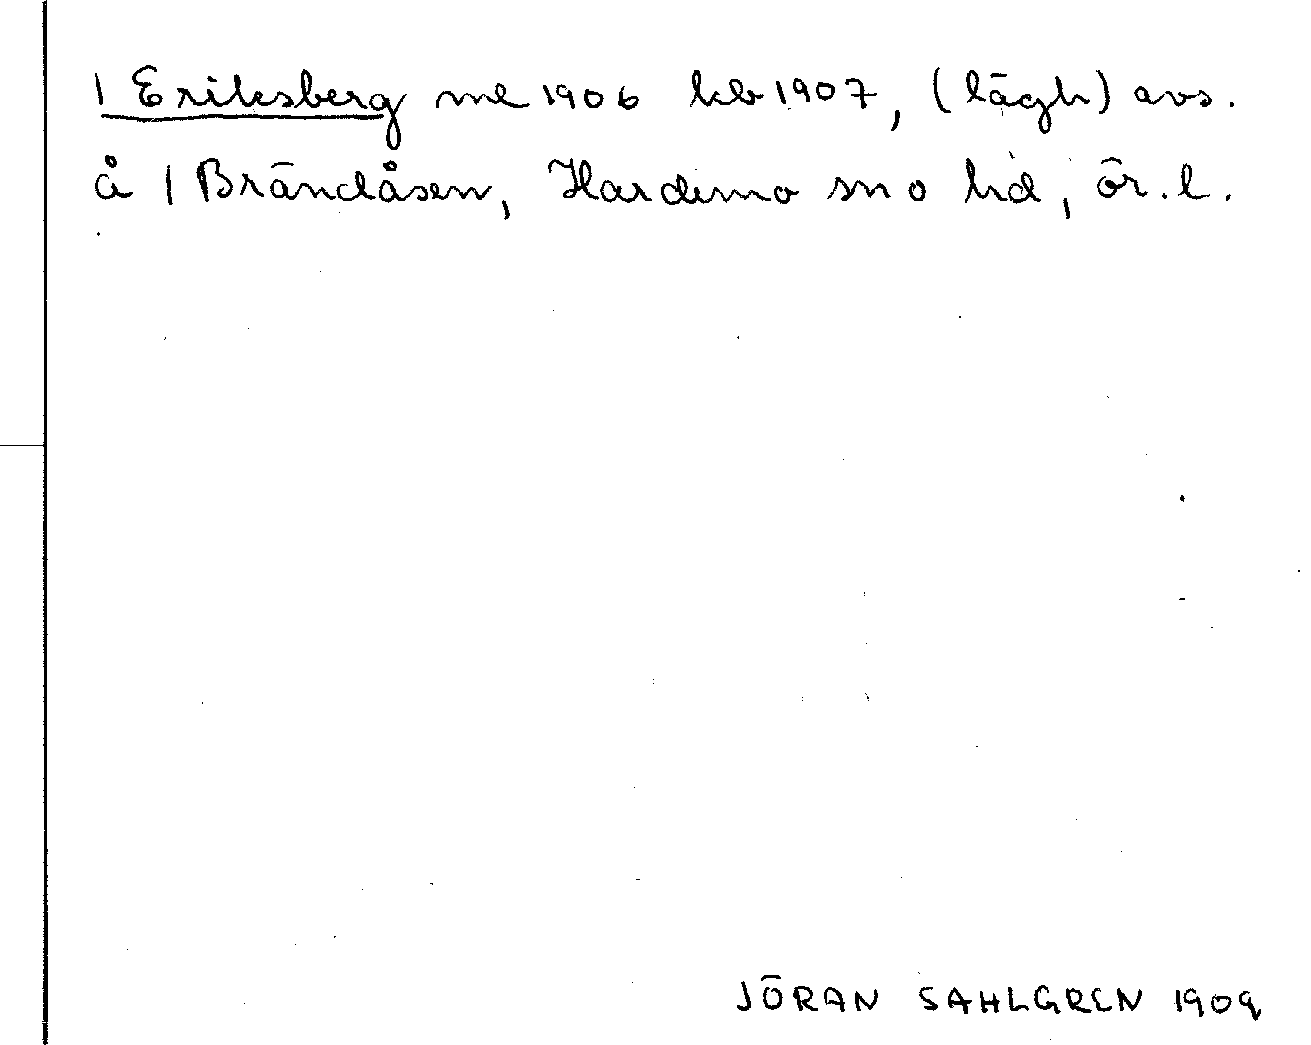 1 Eriksberg ml 1906 kb 1907, (lägh) avs.
å 1 Brändåsen, Hardemo sn o hd, ör. l.
JÖRAN SAHLGREN 1909